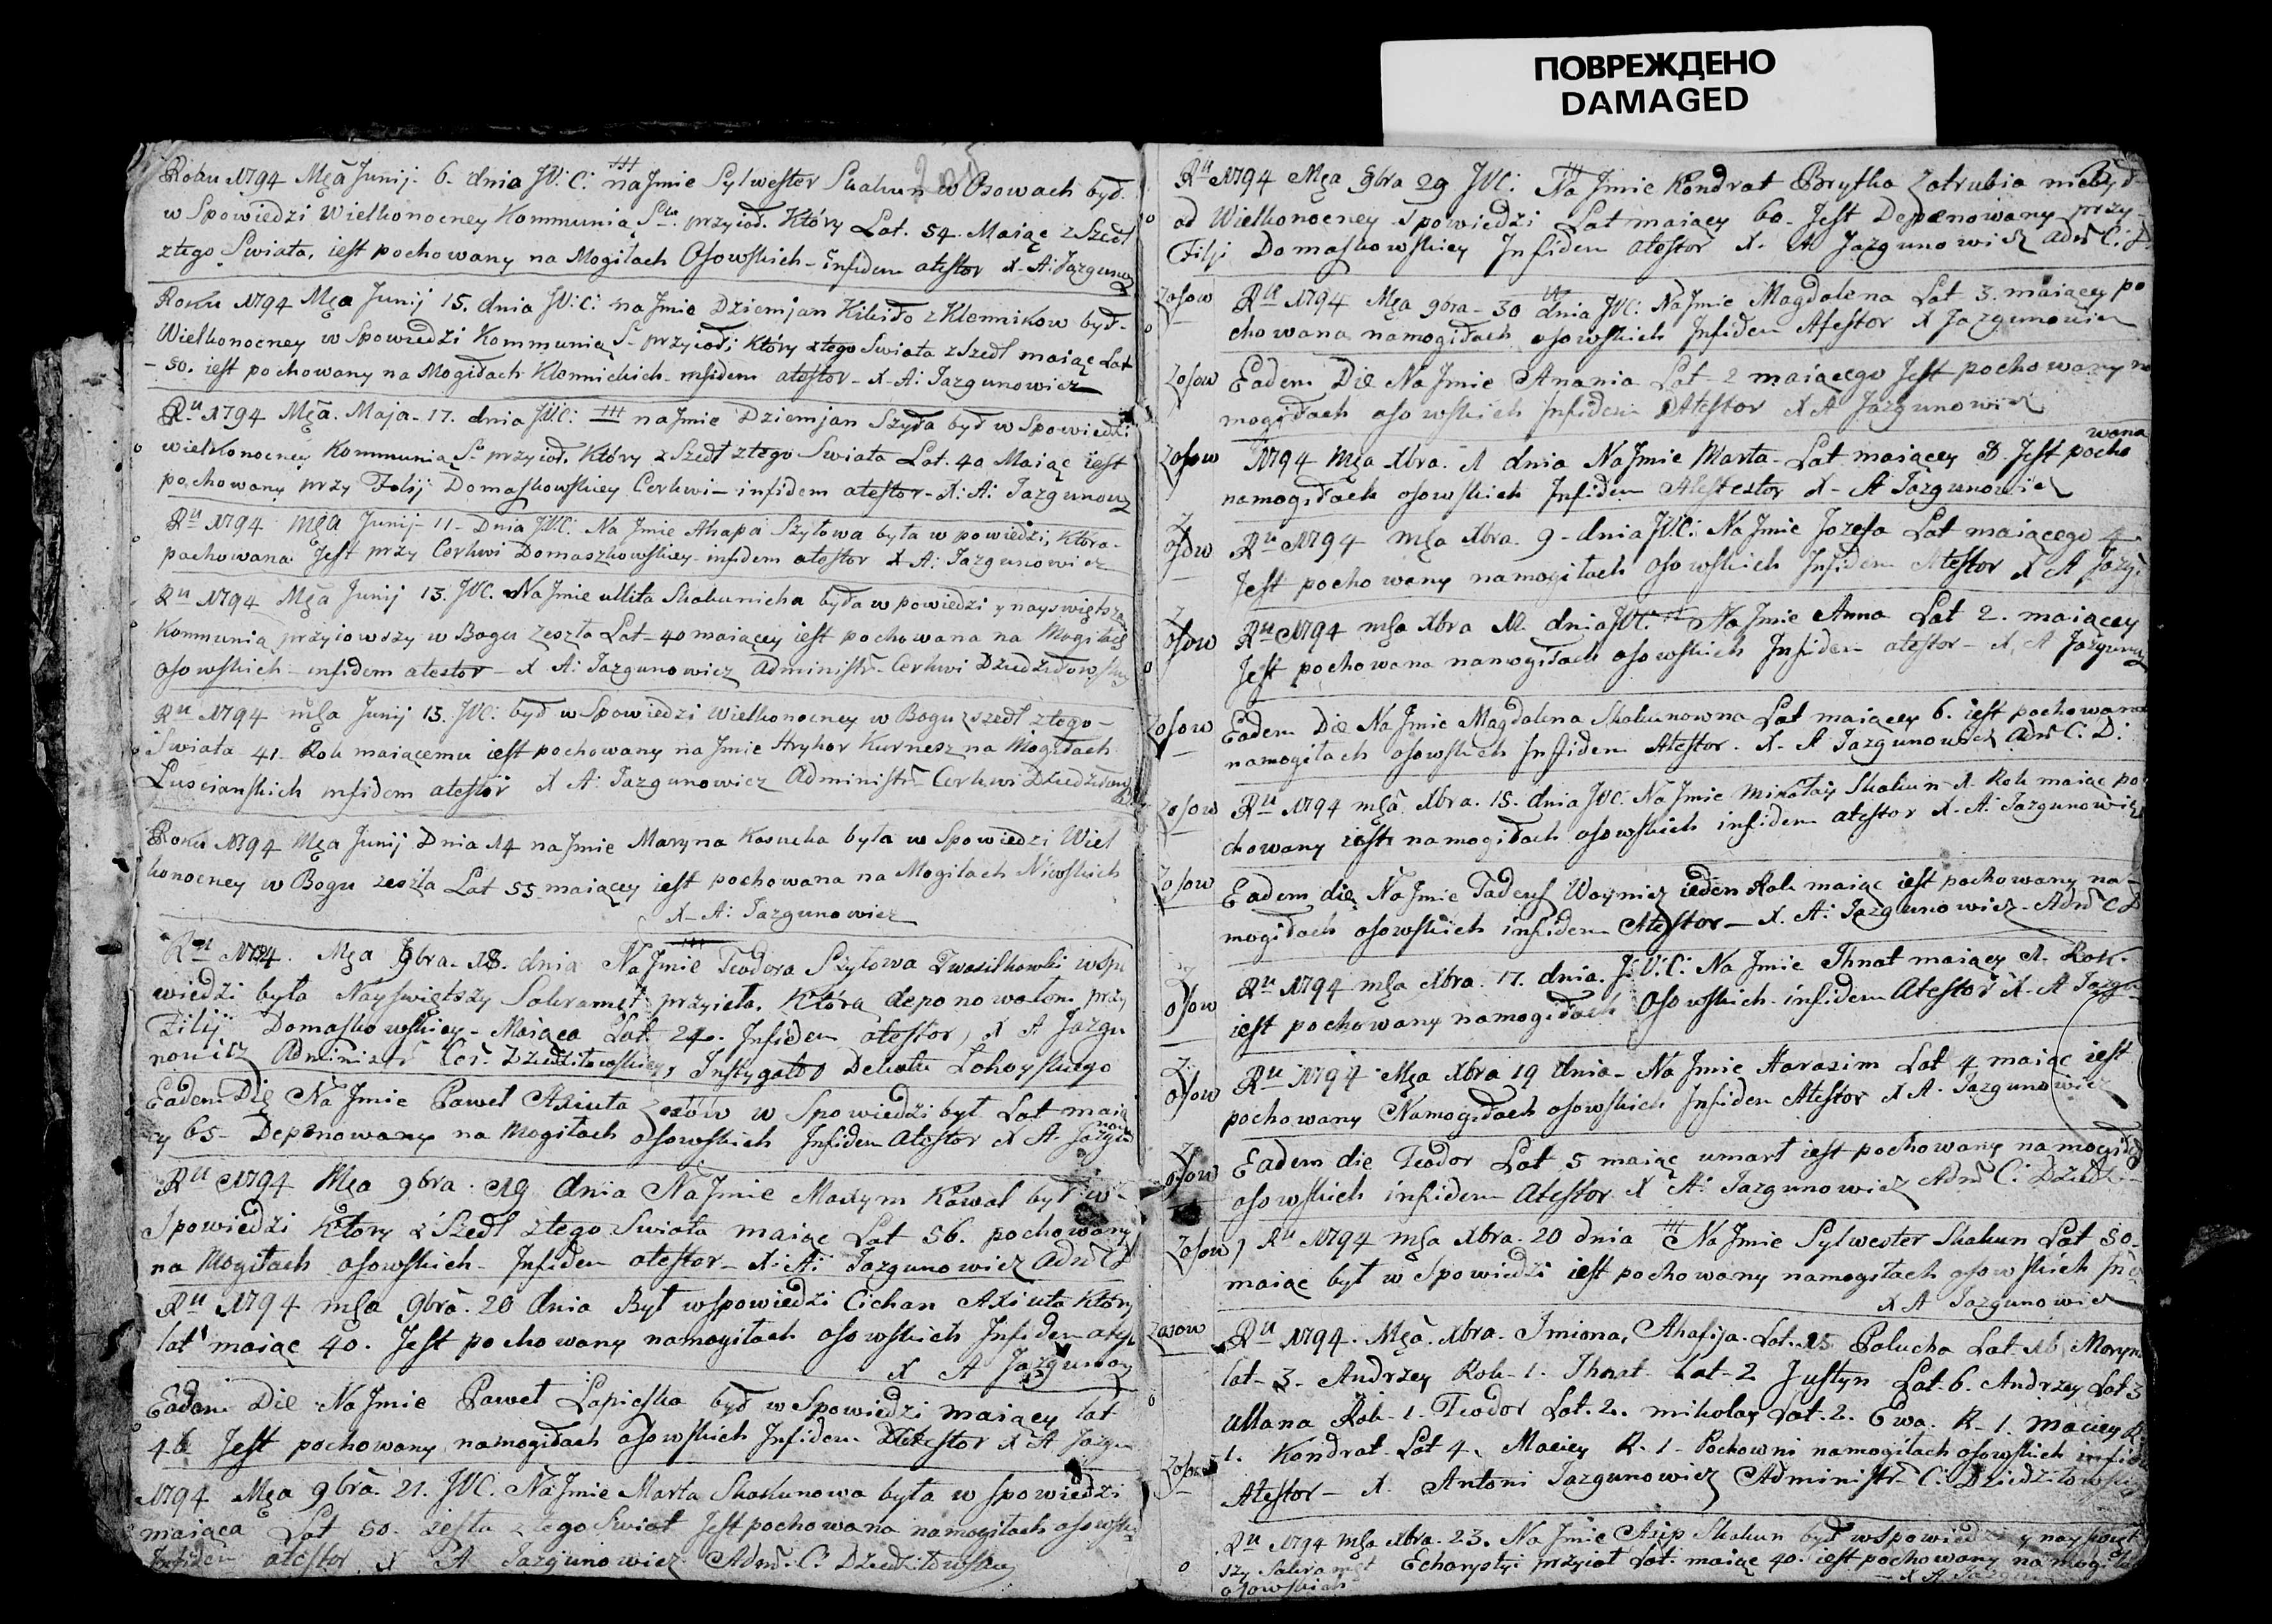 ПОВРЕЖДЕНО
DAMAGED
Roku 1794 Mca Junij. 6. dnia JW: C: na Jmie Sylwester Skakun w Osowach był.
w Spowiedzi Wielkonocney Kommunią Stą przyioł. Który Lat. 54. Maiąc z Szedł
ztego Swiata, iest pochowany na Mogiłach Osowskich - infidem atestor X. A: Jazgunowicz
Roku 1794 Mca Junij 15. dnia JW: C: na Jmie Dziemjan z Klennikow był.
Wielkonocney w Spowiedzi Kommunią S. przyioł; który ztego Swiata z Szedł maiąc Lat
- 50. iest pochowany na Mogiłach Klennickich - infidem atestor - X. A: Jazgunowicz
Ru 1794 Mca. Maja - 17. dnia JWC: na Jmie Dziemjan Szyła był w Spowiedzi
wielkonocney Kommunią S. przyioł, Który z Szedł ztego Swiata Lat. 40 Maiąc iest
pochowany przy Filij Domaszkowskiey Cerkwi - infidem atestor - X: A: Jazgunowicz
Ru 1794 mca Junij - 11 - Dnia JWC: Na Jmie Ahapa Szyłowa była w powiedzi, która -
pochowana Jest przy Cerkwi Domaszkowskiey - infidem atestor X A: Jazgunowicz
Ru 1794 Mca Junij 13. JWC. Na Jmie ullita Skakunicha była w powiedzi y nayswiętszą
Kommunią przyiowszy w Bogu zeszła Lat - 40 maiącey iest pochowana na Mogiłach
osowskich - infidem atestor - X A: Jazgunowicz Administr. Cerkwi
Ru 1794 mca Junij 13. JWC: był w Spowiedzi Wielkonocney w Bogu zszedł ztego -
Swiata 41. Rok maiącemu iest pochowany na Jmie Hryhor Kurnesz na Mogiłach
Lusciańskich infidem atestor X A: Jazgunowicz Administr Cerkwi
Roku 1794 Mca Junij Dnia 14 na Jmie Maryna Kosucha była w Spowiedzi Wiel
konocney w Bogu zeszła Lat 55 maiącey iest pochowana na Mogiłach Niwskich
X - A: Jazgunowicz
Ru 1794. Mca 9bra. 18. dnia Na Jmie Teodora Szyłowa w spo
wiedzi była Nayswiętszy Sakrament przyieła. Która deponowałom przy
Filij Domaszkowskiey - Maiąca Lat 24. Infidem atestor, X A Jazgu
nowicz Administr Cer. Instygator Dekatu Łohoyskiego
Eadem Die Na Jmie Paweł Axiuta z osów w Spowiedzi był Lat maią
cy 65 - Deponowany na Mogiłach osowskich Infidem atestor X A. Jazgu
Ru 1794 Mca 9bra. 19 dnia Na Jmie Maxym Kowal był w -
Spowiedzi Który z Szedł ztego Swiata maiąc Lat 56. pochowany
na Mogiłach osowskich - Infidem atestor - X: A: Jazgunowicz Adm C D
Ru 1794 mca 9bra. 20 dnia Był w spowiedzi Cichan Axiuta Który
lat maiąc 40. Jest pochowany na mogiłach osowskich Infidem atest
X A Jazgunowicz
Eadem Die Na Jmie Paweł Łapieszka był w Spowiedzi maiącey lat
46 Jest pochowany na mogiłach osowskich Infidem Atestor X A Jazgu
1794 Mca 9bra. 21. JWC. Na Jmie Marta Skakunowa była w spowiedzi
maiąca Lat 50. zeszła z tego Swiat Jest pochowana na mogiłach osowski
Infidem atestor X A Jazgunowicz Adm. C:
Ru 1794 Mca 9bra 29 JWC: Na Jmie Kondrat Brytka Zatrubia niebył
od Wielkonocney Spowiedzi Lat maiący 60. Jest Deponowany przy -
Filji Domaszkowskiey Infidem atestor X. A Jazgunowicz Adm C: D
Zosow Ru 1794 Mca 9bra - 30 dnia JWC: Na Jmie Magdalena Lat 3. maiącey po
chowana na mogiłach osowskich Infidem Atestor X Jazgunowicz
Zosow Eadem Die Na Jmie Anania Lat 2 maiącego Jest pochowany na
mogiłach osowskich Infidem Atestor X A Jazgunowicz
Zosow 1794 Mca Xbra. 1 dnia Na Jmie Marta Lat maiącey Jest pocho wana
na mogiłach osowskich Infidem Atestor X - A Jazgunowicz
Z osow Ru 1794 mca Xbra. 9 - dnia JWC: Na Jmie Jozefa Lat maiącego 4
Jest pochowany na mogiłach osowskich Infidem Atestor X A Jazgu
Z osow Ru 1794 mca Xbra 12. dnia JWC. Na Jmie Anna Lat 2. maiącey
Jest pochowana na mogiłach osowskich Infidem atestor - X. A Jazgunowicz
Zosow Eadem Die Na Jmie Magdalena Skakunowna Lat maiącey 6. iest pochowana
na mogiłach osowskich Infidem Atestor. X. A Jazgunowicz Adm C: D:
Zosow Ru 1794 mca Xbra. 15. dnia JWC: Na Jmie Mikołay Skakun - X. Rok maiąc po
chowany iest na mogiłach osowskich infidem atestor X. A: Jazgunowicz
Zosow Eadem die Na Jmie Tadeusz Woynicz ieden Rok maiąc iest pochowany na -
mogiłach osowskich infidem Atestor - X. A: Jazgunowicz - Adm C D
Z osow Ru 1794 mca Xbra. 17. dnia. J: W: C: Na Jmie Ihnat maiący 1. Rok.
iest pochowany na mogiłach Osowskich infidem Atestor X. A Jazgu
Z osow Ru 1794 Mca Xbra 19 dnia - Na Jmie Harasim Lat 4 maiąc iest
pochowany Na mogiłach osowskich Infidem Atestor X A. Jazgunowicz
Z osow Eadem die Teodor Lat 5 maiąc umarł iest pochowany na mogiłach
osowskich infidem Atestor X A: Jazgunowicz Adm C:
Zosow Ru 1794 mca Xbra. 20 dnia Na Jmie Sylwester Skakun Lat 50
maiąc był w Spowiedzi iest pochowany na mogiłach osowskich
X A Jazgunowicz
Zosow Ru 1794. Mca. Xbra. Imiona, Ahafija. Lat. 15 Palucha Lat. 16 Maryna
lat - 3 - Andrzey Rok - 1. Ihnat Lat - 2 Justyn Lat - 6. Andrzey Lat 3
Ullana Rok - 1. Teodor Lat. 2. mikołay Lat. 2. Ewa. R - 1. Maciey R
1. Kondrat Lat 4. Maciey R. 1 - Pochowni na mogiłach osowskich infide
Zosow Atestor - X. Antoni Jazgunowicz Administr. C:
Ru 1794 mca Xbra. 23. Na Jmie Asip Skakun był w spowiedzi y nayswięt
szy Sakrament Echarystyi przyioł Lat. maiąc 40. iest pochowany na mogiłach
osowskich - X A